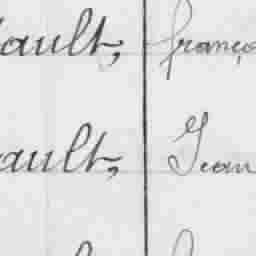 ault, franço
ault, Jean